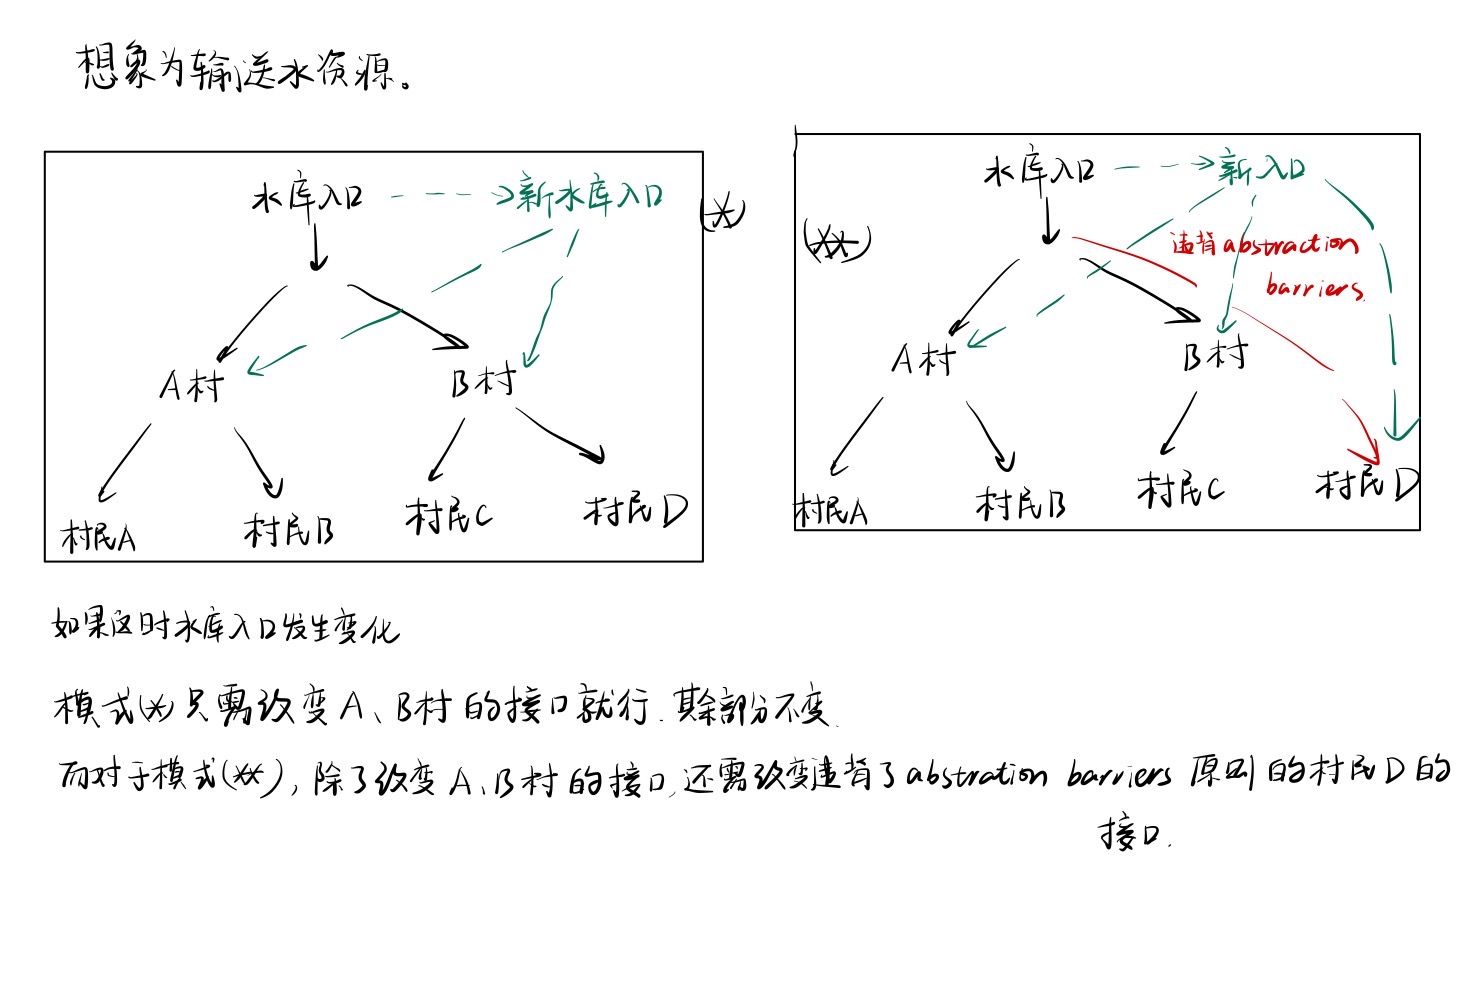 想象为输送水资源。
水库入口
新水库入口
(*)
A村
B村
村民A
村民B
村民C
村民D
(**)
水库入口
新入口
违背abstraction
barriers
A村
B村
村民A
村民B
村民C
村民D
如果这时水库入口发生变化
模式(*)只需改变A、B村的接口就行.其余部分不变.
而对于模式(**),除了改变A、B村的接口,还需改变违背了abstration barriers原则的村民D的
接口.